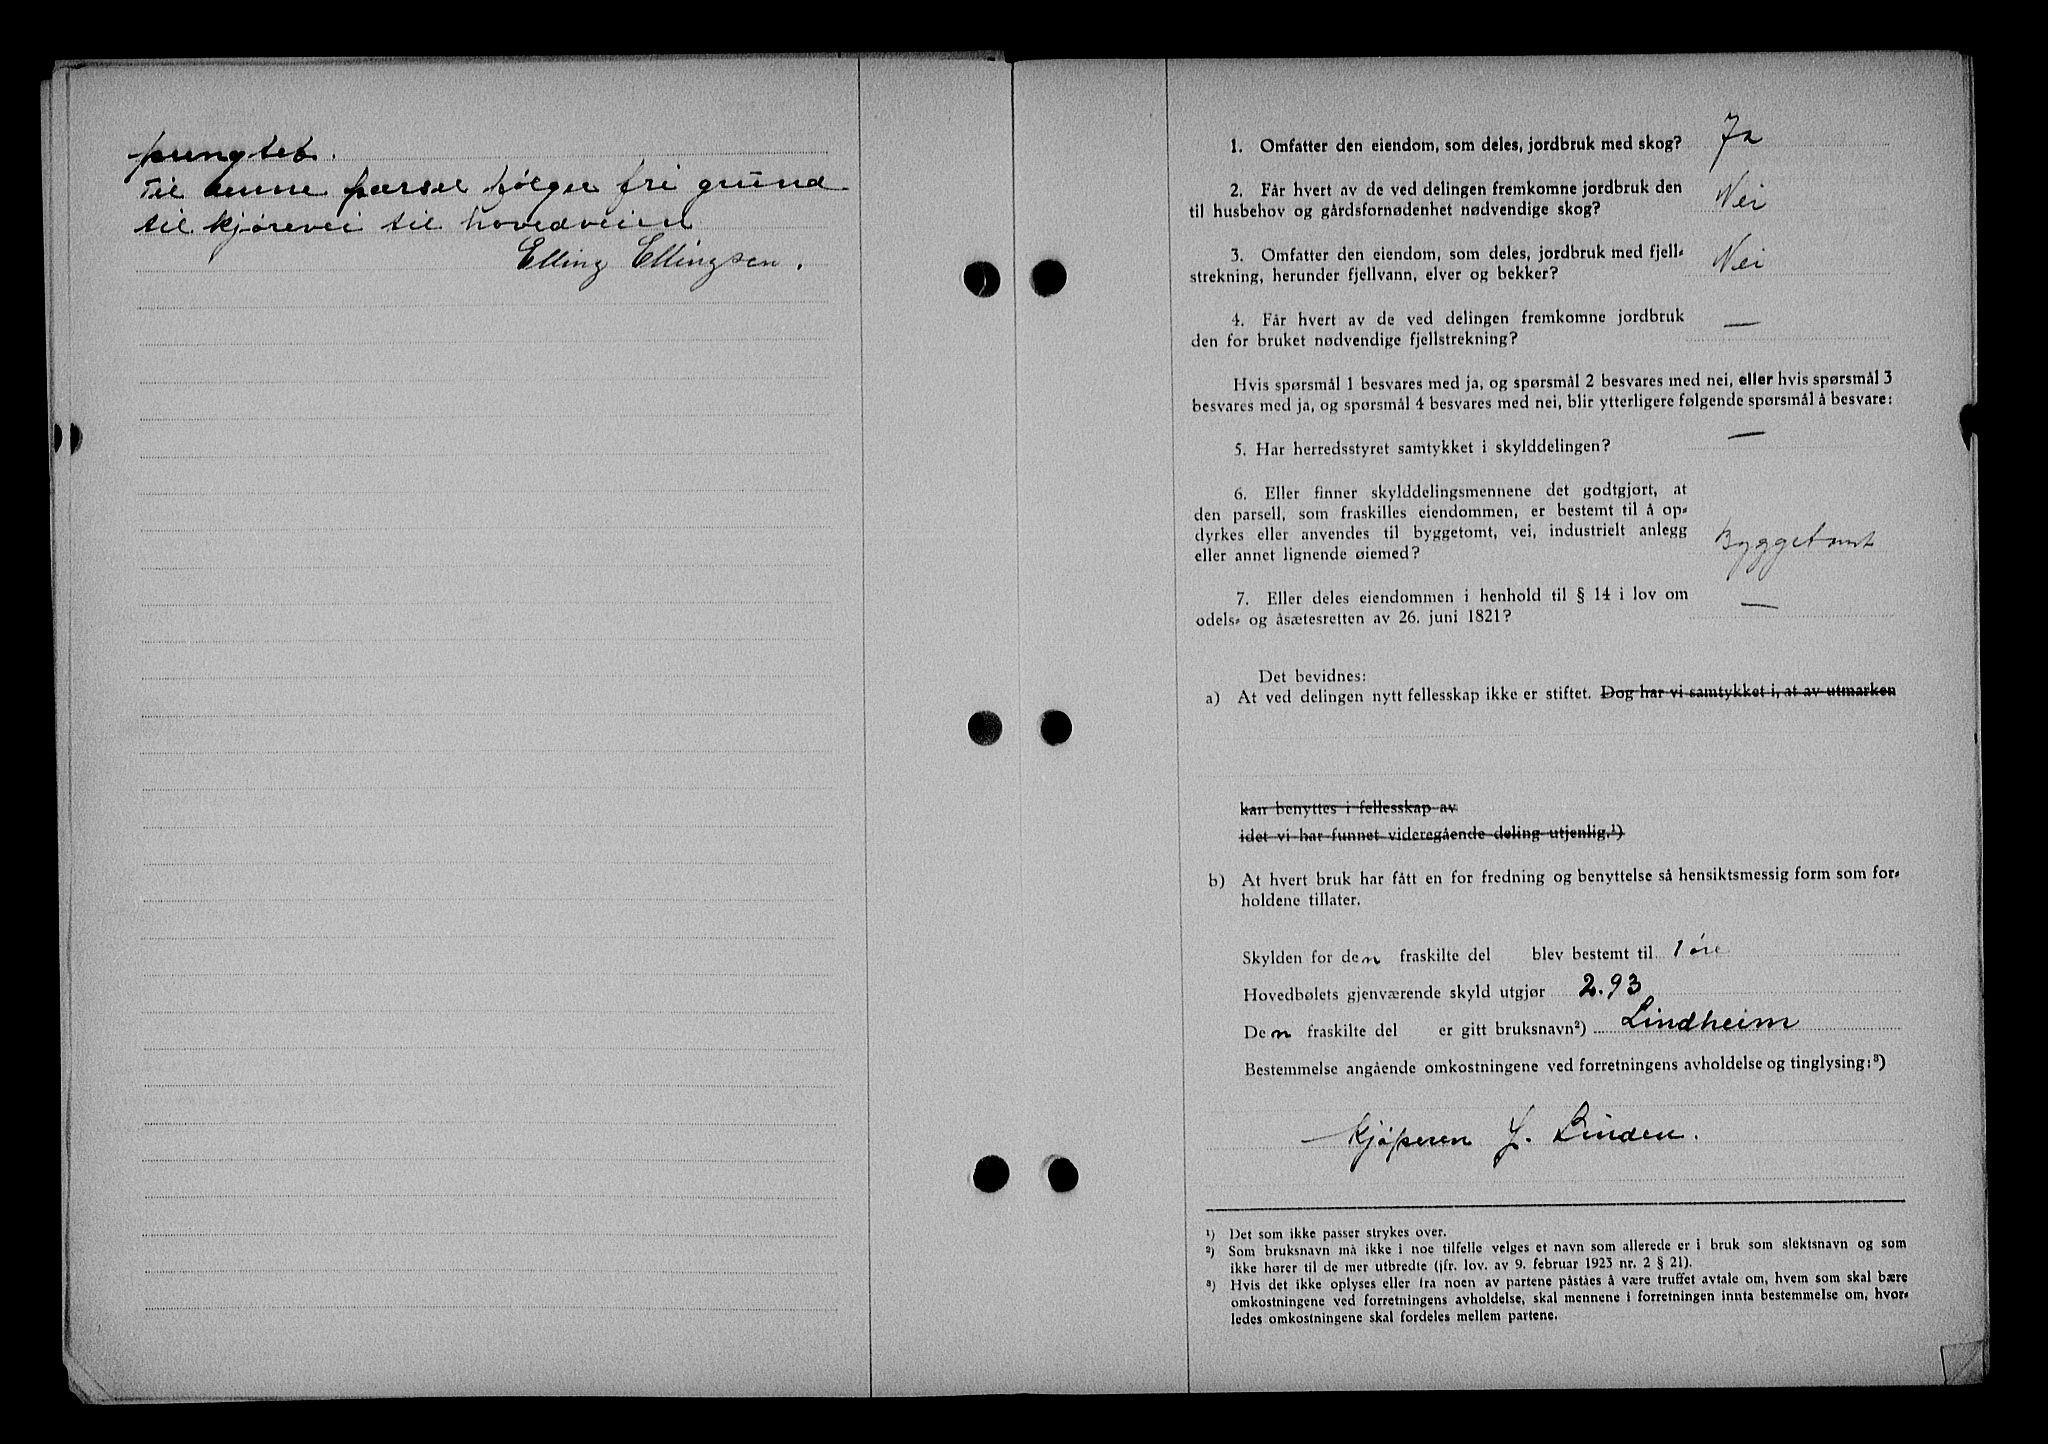 pungtet.
Til denne parsel følger fri grund
til kjørevei til hovedveien
Elling Ellingsen.
1. Omfatter den eiendom, som deles, jordbruk med skog? Ja
2. Får hvert av de ved delingen fremkomne jordbruk den
til husbehov og gårdsfornødenhet nødvendige skog? Nei
3. Omfatter den eiendom, som deles, jordbruk med fjell-
strekning, herunder fjellvann, elver og bekker? Nei
4. Får hvert av de ved delingen fremkomne jordbruk
den for bruket nødvendige fjellstrekning? —
Hvis spørsmål 1 besvares med ja, og spørsmål 2 besvares med nei, eller hvis spørsmål 3
besvares med ja, og spørsmål 4 besvares med nei, blir ytterligere følgende spørsmål å besvare:
5. Har herredsstyret samtykket i skylddelingen? —
6. Eller finner skylddelingsmennene det godtgjort, at
den parsell, som fraskilles eiendommen, er bestemt til å op-
dyrkes eller anvendes til byggetomt, vei, industrielt anlegg
eller annet lignende øiemed? Byggetomt
7. Eller deles eiendommen i henhold til § 14 i lov om
odels- og åsætesretten av 26. juni 1821? —
Det bevidnes:
a) At ved delingen nytt fellesskap ikke er stiftet. Dog har vi samtykket i, at av utmarken
kan benyttes i fellesskap av
idet vi har funnet videregående deling utjenlig.¹)
b) At hvert bruk har fått en for fredning og benyttelse så hensiktsmessig form som for-
holdene tillater.
Skylden for den fraskilte del blev bestemt til 1 øre
Hovedbølets gjenværende skyld utgjør 2.93
Den fraskilte del er gitt bruksnavn²) Lindheim
Bestemmelse angående omkostningene ved forretningens avholdelse og tinglysing:³)
Kjøperen L. Linden.
¹) Det som ikke passer strykes over.
²) Som bruksnavn må ikke i noe tilfelle velges et navn som allerede er i bruk som slektsnavn og som
ikke hører til de mer utbredte (jfr. lov. av 9. februar 1923 nr. 2 § 21).
³) Hvis det ikke oplyses eller fra noen av partene påståes å være truffet avtale om, hvem som skal bære
omkostningene ved forretningens avholdelse, skal mennene i forretningen innta bestemmelse om, hvor-
ledes omkostningene skal fordeles mellem partene.